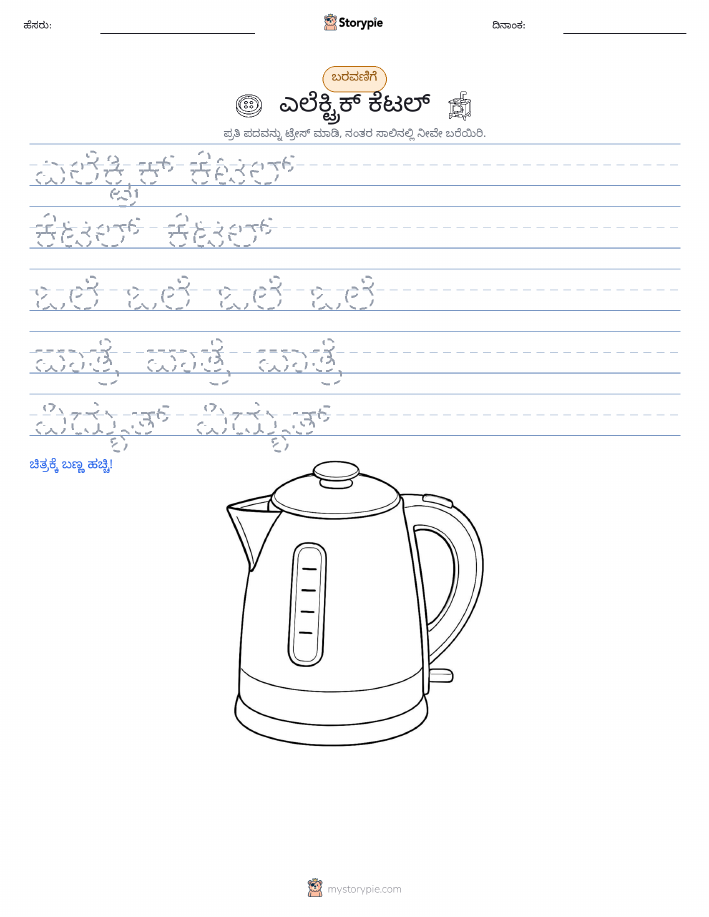 ಹೆಸರು: Storypie ದಿನಾಂಕ:
ಬರವಣಿಗೆ
ಎಲೆಕ್ಟ್ರಿಕ್ ಕೆಟಲ್
ಪ್ರತಿ ಪದವನ್ನು ಟ್ರೇಸ್ ಮಾಡಿ, ನಂತರ ಸಾಲಿನಲ್ಲಿ ನೀವೇ ಬರೆಯಿರಿ.
ಎಲೆಕ್ಟ್ರಿಕ್ ಕೆಟಲ್
ಕೆಟಲ್ ಕೆಟಲ್
ಒಲೆ ಒಲೆ ಒಲೆ ಒಲೆ
ಪಾತ್ರೆ ಪಾತ್ರೆ ಪಾತ್ರೆ
ವಿದ್ಯುತ್ ವಿದ್ಯುತ್
ಚಿತ್ರಕ್ಕೆ ಬಣ್ಣ ಹಚ್ಚಿ!
mystorypie.com